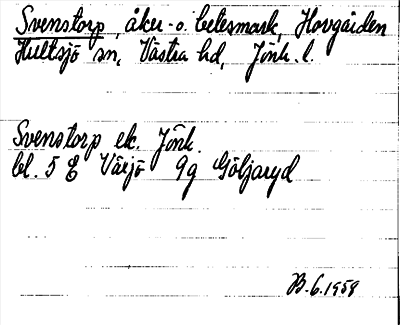 Svenstorp, åker- o. betesmark, Hovgården
Hultsjö sn, Västra hd, Jönk. l.
Svenstorp ek. Jönk.
bl. 5 E Värjö 9g Göljaryd
B.6.1958